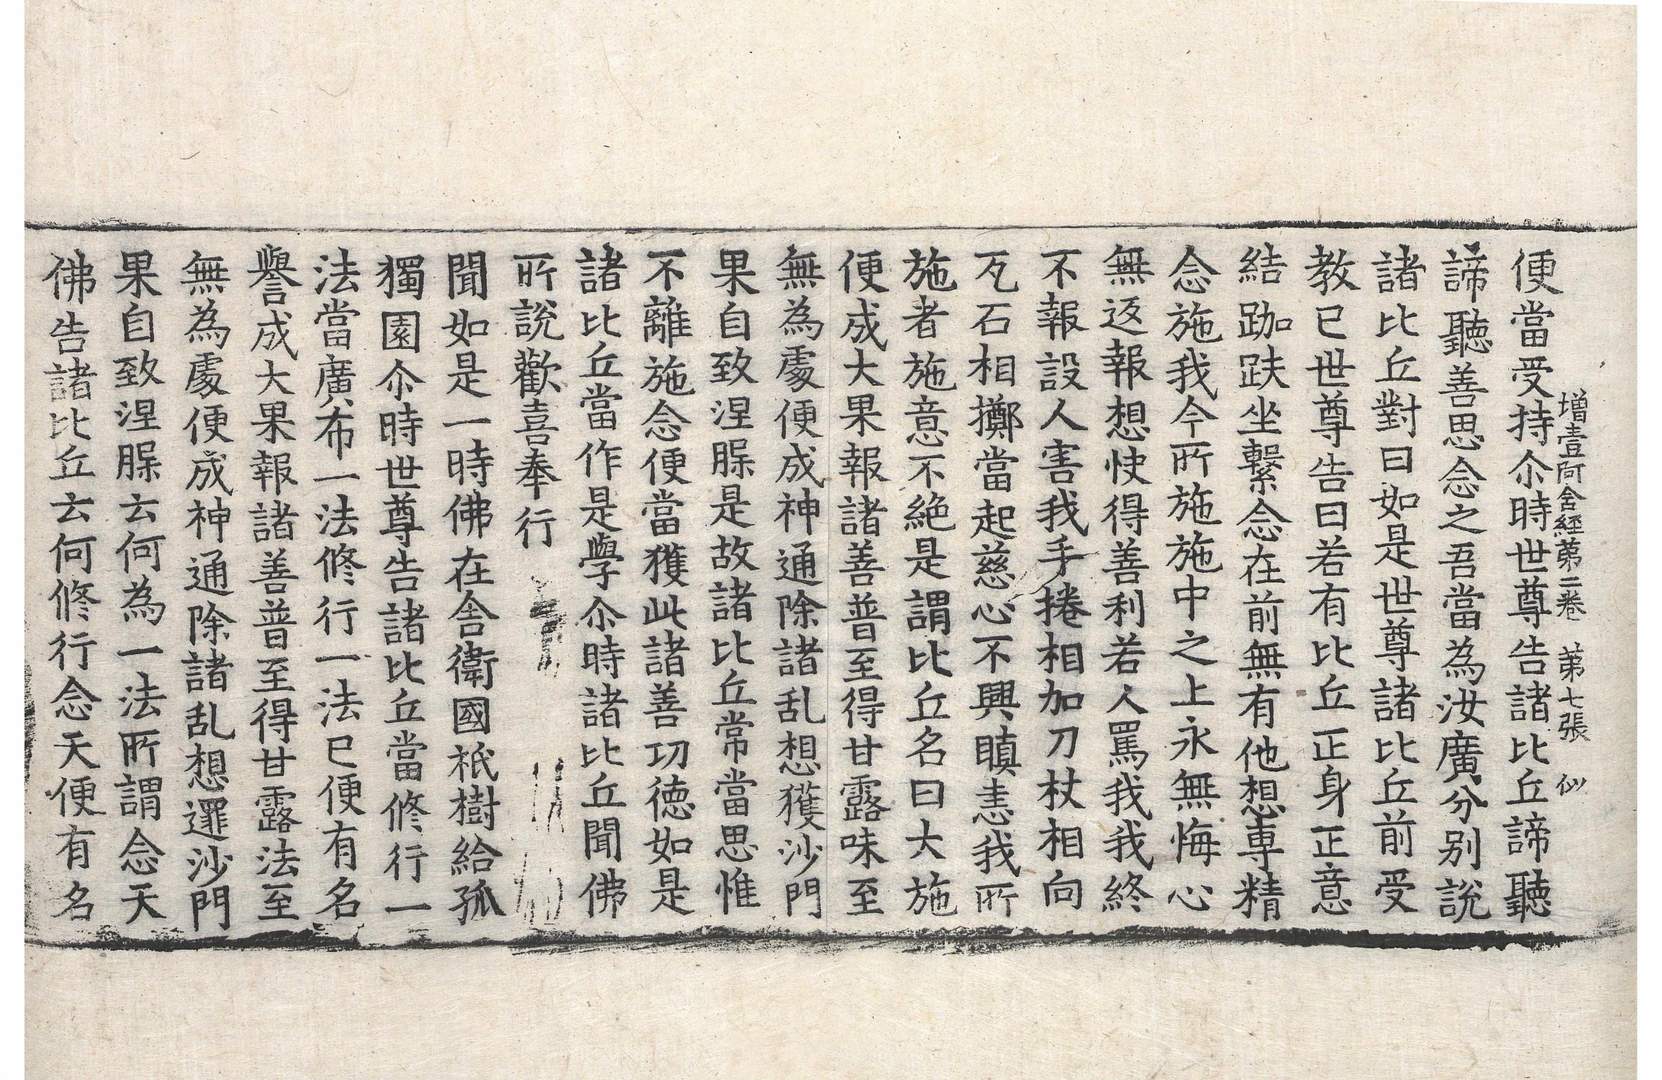 增壹阿含經苐二卷 苐七張 似
便當受持尒時世尊告諸比丘諦聽
諦聽善思念之吾當為汝廣分别說
諸比丘對曰如是世尊諸比丘前受
教已世尊告曰若有比丘正身正意
結跏趺坐繫念在前無有他想專精
念施我今所施施中之上永無悔心
無返報想快得善利若人罵我我終
不報設人害我手捲相加刀杖相向
瓦石相擲當起慈心不興瞋恚我所
施者施意不絶是謂比丘名曰大施
便成大果報諸善普至得甘露味至
無為處便成神通除諸乱想獲沙門
果自致涅槃是故諸比丘常當思惟
不離施念便當獲此諸善功德如是
諸比丘當作是學尒時諸比丘聞佛
所說歡喜奉行
聞如是一時佛在舍衛國祇樹給孤
獨園尒時世尊告諸比丘當修行一
法當廣布一法修行一法已便有名
譽成大果報諸善普至得甘露法至
無為處便成神通除諸乱想逮沙門
果自致涅槃云何為一法所謂念天
佛告諸比丘云何修行念天便有名